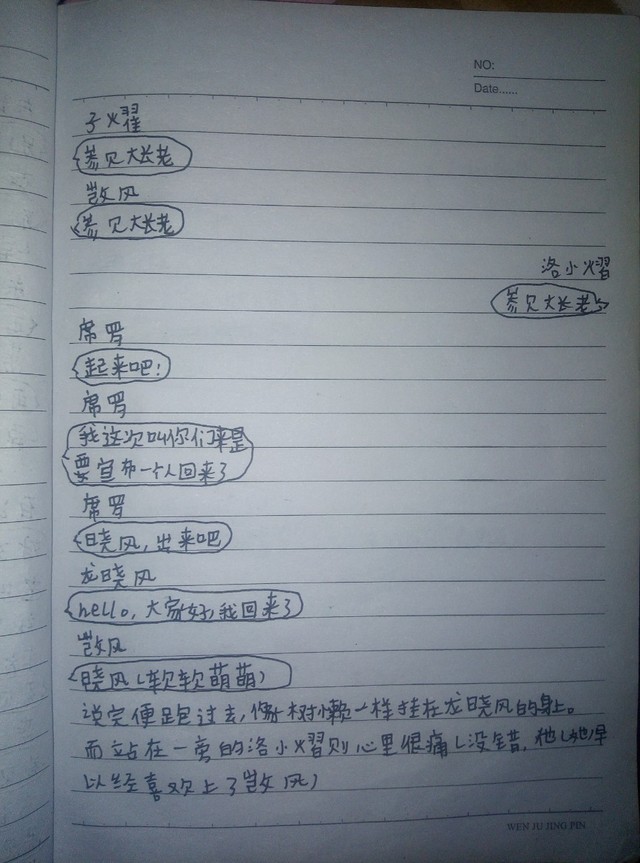 NO:
Date......
子耀
参见大长老
凯风
参见大长老
洛小熠
参见大长老
席罗
起来吧！
席罗
我这次叫你们来是
要宣布一个人回来了
席罗
晓风，出来吧
龙晓风
hello，大家好，我回来了
凯风
晓风（软软萌萌）
说完便跑过去，像树懒一样挂在龙晓风的身上。
而站在一旁的洛小熠则心里很痛（没错，他（她）早
以经喜欢上了凯风）
WEN JU JING PIN